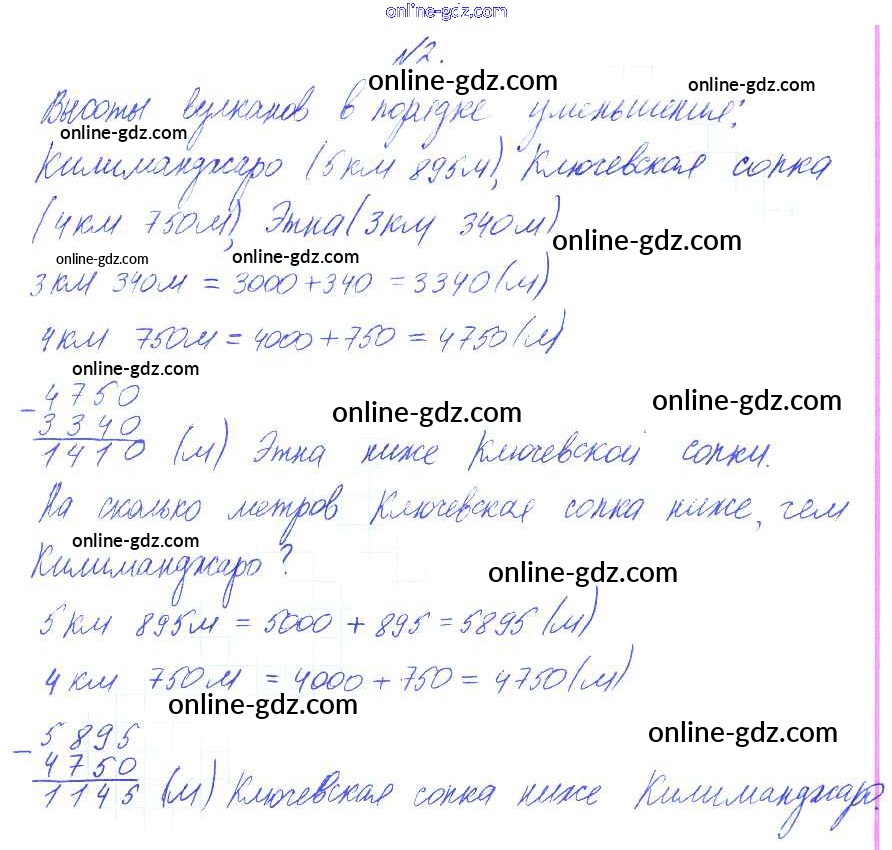 online-gdz.com
№2.
online-gdz.com online-gdz.com
Высоты вулканов в порядке уменьшения:
online-gdz.com
Килиманджаро (5км 895м), Ключевская сопка
(4км 750м), Этна (3км 340м)
online-gdz.com
online-gdz.com online-gdz.com
3км 340м = 3000+340 = 3340(м)
4км 750м = 4000+750 = 4750(м)
online-gdz.com
- 4750
online-gdz.com online-gdz.com
3340
1410 (м) Этна ниже Ключевской сопки.
На сколько метров Ключевская сопка ниже, чем
online-gdz.com
Килиманджаро?
online-gdz.com
5км 895м = 5000 + 895 = 5895(м)
4км 750м = 4000 + 750 = 4750(м)
online-gdz.com
- 5895
online-gdz.com
4750
1145 (м) Ключевская сопка ниже Килиманджаро.